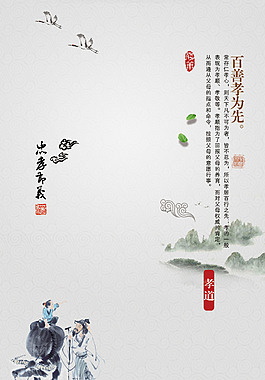 百善孝为先。
常存仁孝心，则天下凡不可为者，皆不忍为，所以孝居百行之先；孝亦一般
表现为孝顺、孝敬等。孝顺指为了回报父母的养育，而对父母权威的肯定，
从而遵从父母的指点和命令，按照父母的意愿行事。
忠孝节义
孝道